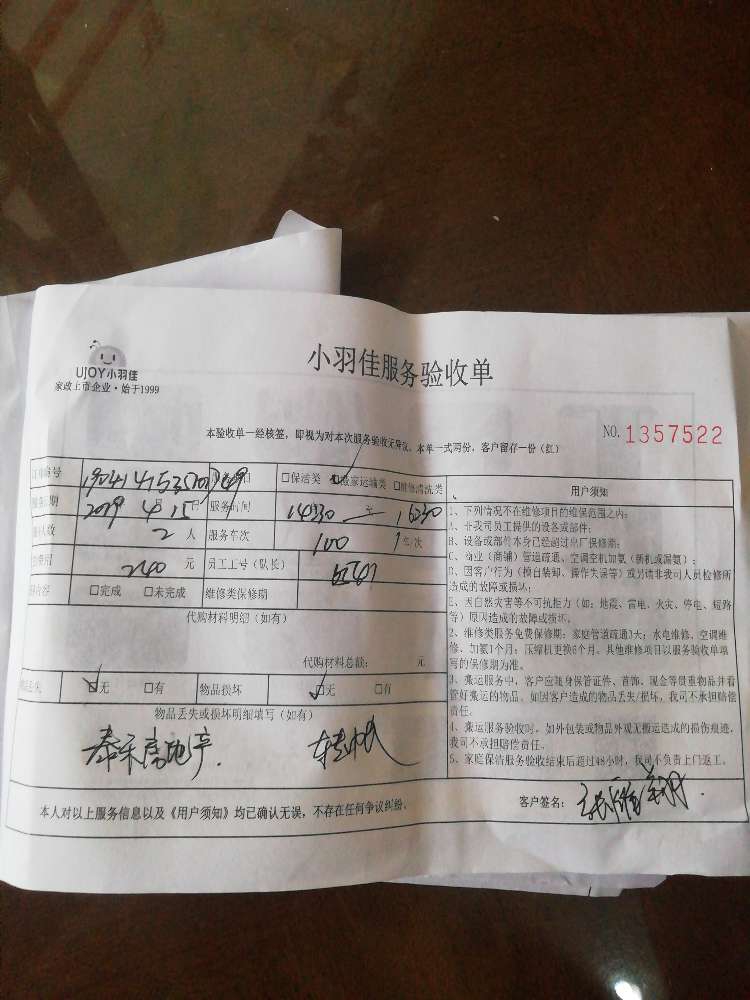 UJOY小羽佳
家政上市企业·始于1999
小羽佳服务验收单
本验收单一经核签，即视为对本次服务验收无异议。本单一式两份，客户留存一份（红）
NO. 1357522
编号
□保洁类 ☑搬家运输类 □维修清洗类
2019 年 4 月 15 日 服务时间 14330 至 16230
人数 2 人 服务车次 100 1 车/次
费用 240 元 员工工号（队长）
内容 □完成 □未完成 维修类保修期
代购材料明细（如有）
代购材料总额： 元
物品丢失 ☑无 □有 物品损坏 ☑无 □有
物品丢失或损坏明细填写（如有）
泰禾房地产.
本人对以上服务信息以及《用户须知》均已确认无误，不存在任何争议纠纷。
用户须知
1、下列情况不在维修项目的维保范围之内：
A、非我司员工提供的设备或部件；
B、设备或部件本身已经超过出厂保修期；
C、商业（商铺）管道疏通、空调空机加氨（新机或漏氨）；
D、因客户行为（擅自装卸、操作失误等）或另请非我司人员检修所
造成的故障或损坏；
E、因自然灾害等不可抗拒力（如：地震、雷电、火灾、停电、短路
等）原因造成的故障或损坏。
2、维修类服务免费保修期：家庭管道疏通3天；水电维修、空调维
修、加氨1个月；压缩机更换6个月。其他维修项目以服务验收单填
写的保修期为准。
3、搬运服务中，客户应随身保管证件、首饰、现金等贵重物品并看
管好搬运的物品。如因客户造成的物品丢失/损坏，我司不承担赔偿
责任。
4、搬运服务验收时，如外包装或物品外观无搬运造成的损伤痕迹，
我司不承担赔偿责任。
5、家庭保洁服务验收结束后超过48小时，我司不负责上门返工。
客户签名：